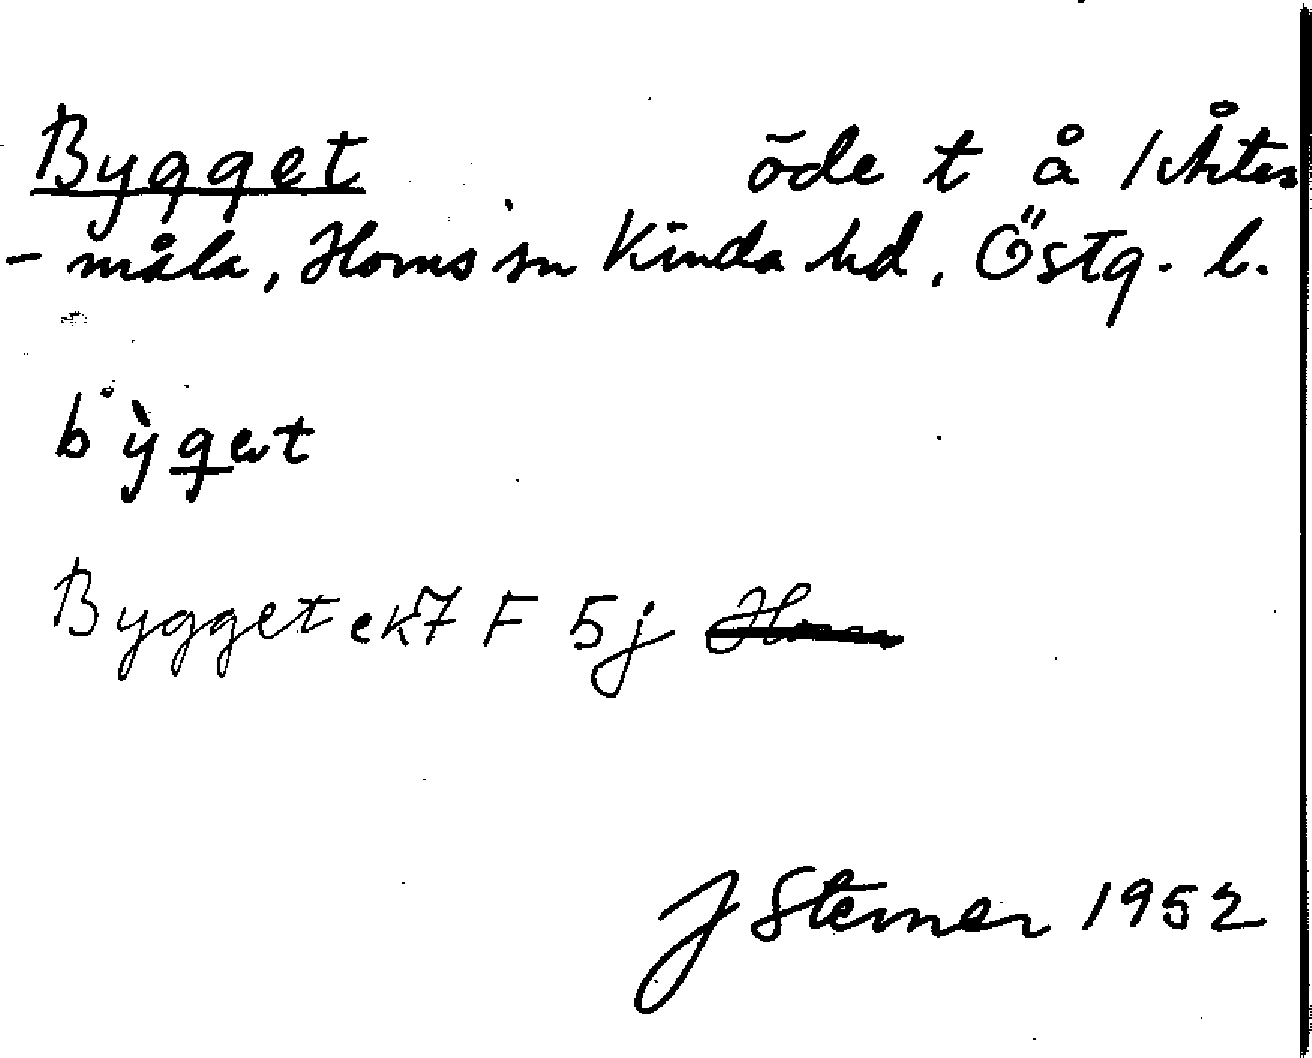 Bygget öde t å 1 Åtes
- måla, Horns sn Kinda hd, Östg. l.
bỳget
Bygget ek7 F 5j
J Sterner 1952